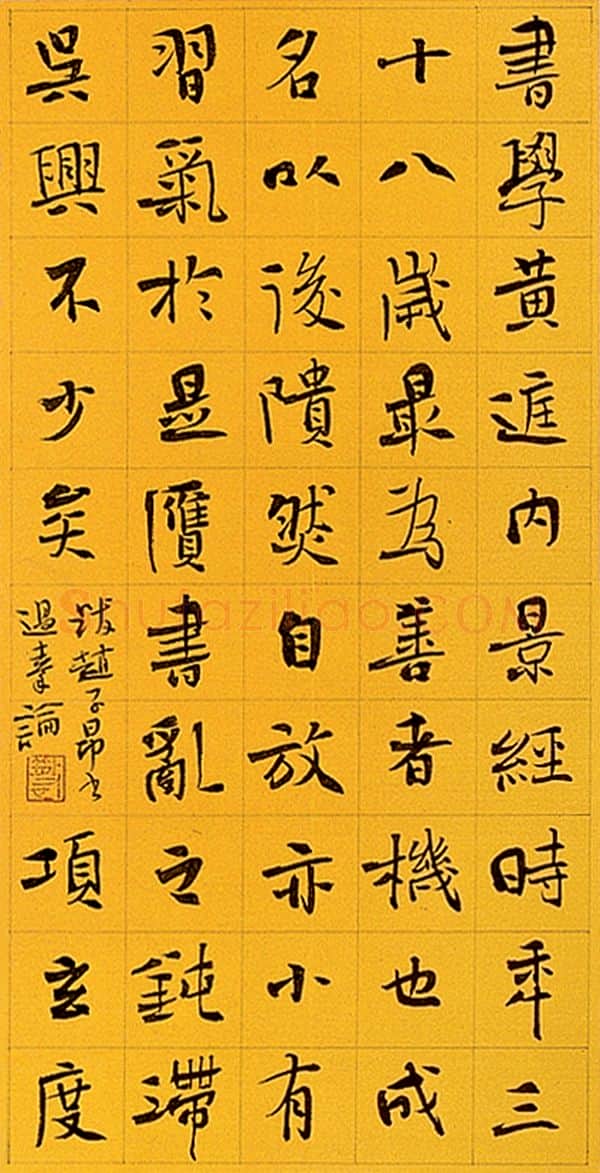 書學黃庭内景經時年三
十八歲最為善者機也成
名以後隤然自放亦小有
習氣於是贋書亂之鈍滯
吳興不少矣
跋趙子昂書
過秦論
項玄度
Shufaziliao.COM